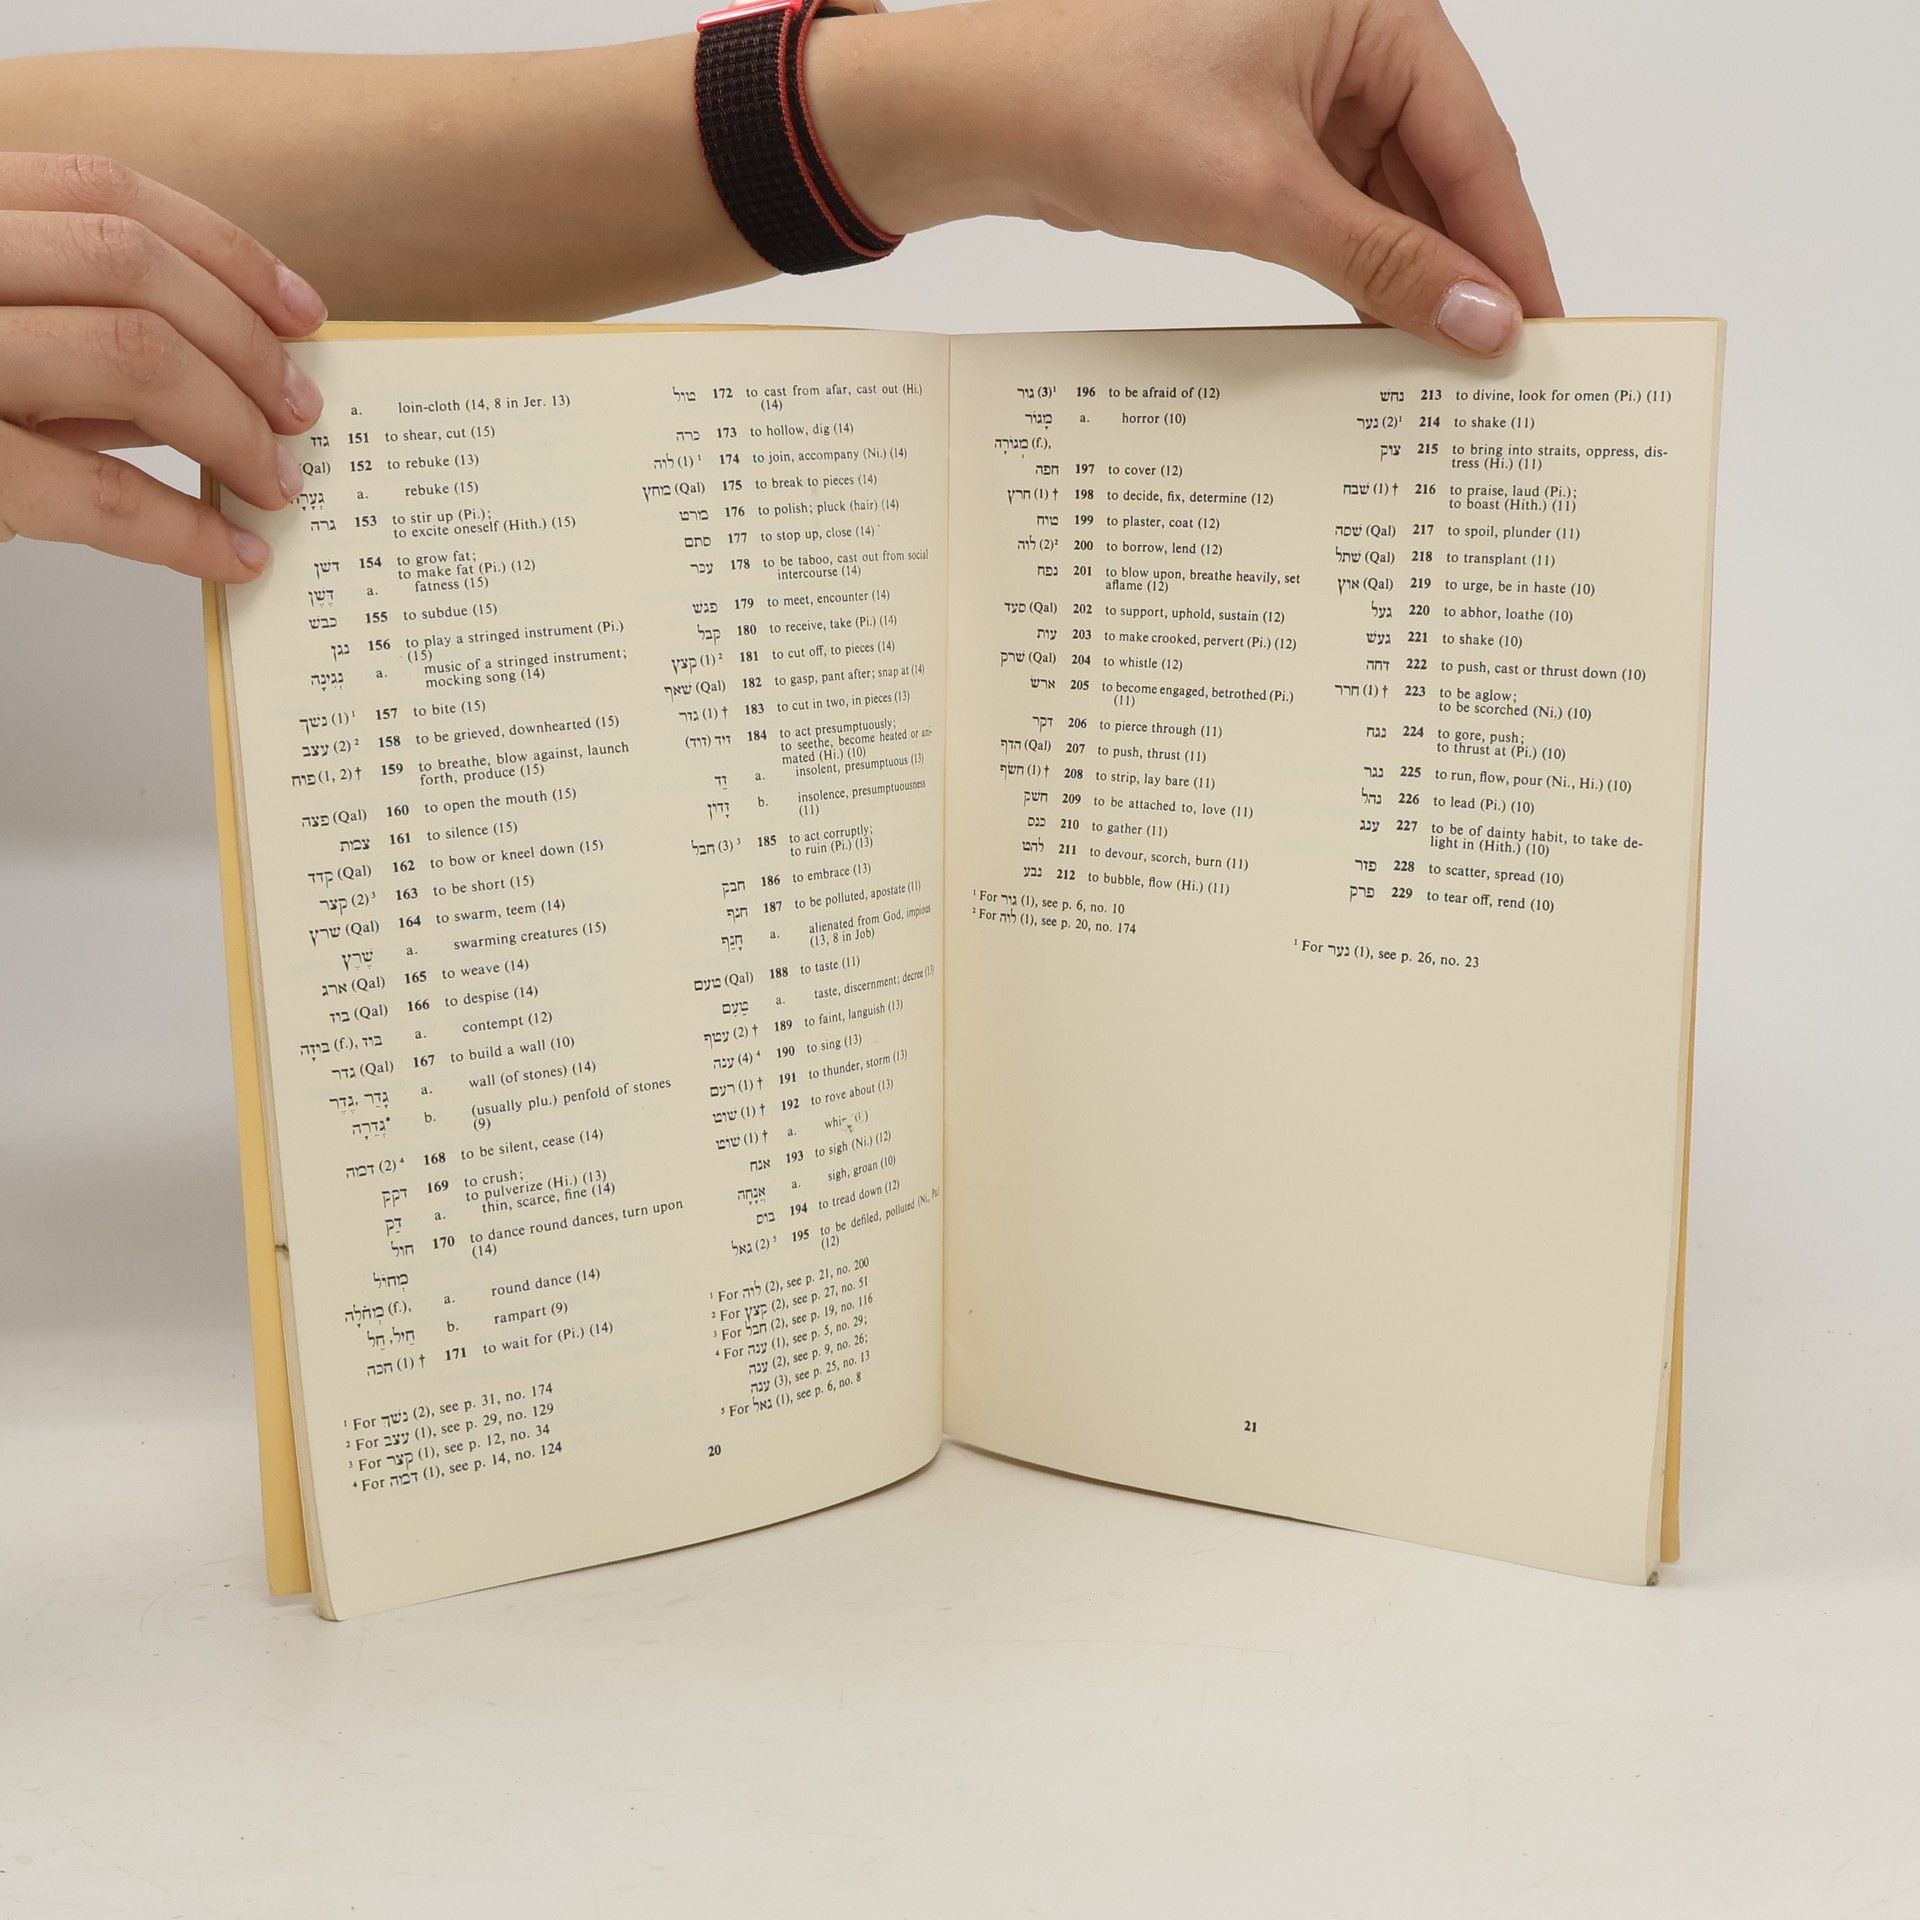 a. loin-cloth (14, 8 in Jer. 13)
גזז 151 to shear, cut (15)
(Qal) 152 to rebuke (13)
גְּעָרָה a. rebuke (15)
גרה 153 to stir up (Pi.);
to excite oneself (Hith.) (15)
דשׁן 154 to grow fat;
to make fat (Pi.) (12)
דֶּשֶׁן a. fatness (15)
כבשׁ 155 to subdue (15)
נגן 156 to play a stringed instrument (Pi.)
(15)
נְגִינָה a. music of a stringed instrument;
mocking song (14)
נשׁך (1)¹ 157 to bite (15)
עצב (2)² 158 to be grieved, downhearted (15)
פוח (1, 2)† 159 to breathe, blow against, launch
forth, produce (15)
פצה (Qal) 160 to open the mouth (15)
צמת 161 to silence (15)
קדד (Qal) 162 to bow or kneel down (15)
קצר (2)³ 163 to be short (15)
שׁרץ (Qal) 164 to swarm, teem (14)
שֶׁרֶץ a. swarming creatures (15)
ארג (Qal) 165 to weave (14)
בוז (Qal) 166 to despise (14)
בּוּזָה (f.), בּוּז a. contempt (12)
גדר (Qal) 167 to build a wall (10)
גָּדֵר, גֶּדֶר a. wall (of stones) (14)
גְּדֵרָה* b. (usually plu.) penfold of stones
(9)
דמה (2)⁴ 168 to be silent, cease (14)
דקק 169 to crush;
to pulverize (Hi.) (13)
דַּק a. thin, scarce, fine (14)
חול 170 to dance round dances, turn upon
(14)
מָחוֹל
מְחֹלָה (f.), a. round dance (14)
חֵיל, חֵל b. rampart (9)
חכה (1)† 171 to wait for (Pi.) (14)
¹ For נשׁך (2), see p. 31, no. 174
² For עצב (1), see p. 29, no. 129
³ For קצר (1), see p. 12, no. 34
⁴ For דמה (1), see p. 14, no. 124
טול 172 to cast from afar, cast out (Hi.)
(14)
כרה 173 to hollow, dig (14)
לוה (1)¹ 174 to join, accompany (Ni.) (14)
מחץ (Qal) 175 to break to pieces (14)
מרט 176 to polish; pluck (hair) (14)
סתם 177 to stop up, close (14)
עכר 178 to be taboo, cast out from social
intercourse (14)
פגשׁ 179 to meet, encounter (14)
קבל 180 to receive, take (Pi.) (14)
קצץ (1)² 181 to cut off, to pieces (14)
שׁאף (Qal) 182 to gasp, pant after; snap at (14)
גזר (1)† 183 to cut in two, in pieces (13)
זיד (זוד) 184 to act presumptuously;
to seethe, become heated or ani-
mated (Hi.) (10)
זֵד a. insolent, presumptuous (13)
זָדוֹן b. insolence, presumptuousness
(11)
חבל (3)³ 185 to act corruptly;
to ruin (Pi.) (13)
חבק 186 to embrace (13)
חנף 187 to be polluted, apostate (11)
חָנֵף a. alienated from God, impious
(13, 8 in Job)
טעם (Qal) 188 to taste (11)
טַעַם a. taste, discernment; decree (13)
עטף (2)† 189 to faint, languish (13)
ענה (4)⁴ 190 to sing (13)
רעם (1)† 191 to thunder, storm (13)
שׁוט (1)† 192 to rove about (13)
שׁוֹט (1)† a.
אנח 193 to sigh (Ni.) (12)
אֲנָחָה a. sigh, groan (10)
בוס 194 to tread down (12)
גאל (2)⁵ 195 to be defiled, polluted (Ni., Pu.)
(12)
¹ For לוה (2), see p. 21, no. 200
² For קצץ (2), see p. 27, no. 51
³ For חבל (2), see p. 19, no. 116
⁴ For ענה (1), see p. 5, no. 29;
ענה (2), see p. 9, no. 26;
ענה (3), see p. 25, no. 13
⁵ For גאל (1), see p. 6, no. 8
20
גור (3)¹ 196 to be afraid of (12)
מָגוֹר a. horror (10)
מְגוֹרָה (f.),
חפה 197 to cover (12)
חרץ (1)† 198 to decide, fix, determine (12)
טוח 199 to plaster, coat (12)
לוה (2)² 200 to borrow, lend (12)
נפח 201 to blow upon, breathe heavily, set
aflame (12)
סעד (Qal) 202 to support, uphold, sustain (12)
עות 203 to make crooked, pervert (Pi.) (12)
שׁרק (Qal) 204 to whistle (12)
ארשׂ 205 to become engaged, betrothed (Pi.)
(11)
דקר 206 to pierce through (11)
הדף (Qal) 207 to push, thrust (11)
חשׂף (1)† 208 to strip, lay bare (11)
חשׁק 209 to be attached to, love (11)
כנס 210 to gather (11)
להט 211 to devour, scorch, burn (11)
נבע 212 to bubble, flow (Hi.) (11)
¹ For גור (1), see p. 6, no. 10
² For לוה (1), see p. 20, no. 174
נחשׁ 213 to divine, look for omen (Pi.) (11)
נער (2)¹ 214 to shake (11)
צוק 215 to bring into straits, oppress, dis-
tress (Hi.) (11)
שׁבח (1)† 216 to praise, laud (Pi.);
to boast (Hith.) (11)
שׁסה (Qal) 217 to spoil, plunder (11)
שׁתל (Qal) 218 to transplant (11)
אוץ (Qal) 219 to urge, be in haste (10)
געל 220 to abhor, loathe (10)
געשׁ 221 to shake (10)
דחה 222 to push, cast or thrust down (10)
חרר (1)† 223 to be aglow;
to be scorched (Ni,) (10)
נגח 224 to gore, push;
to thrust at (Pi.) (10)
נגר 225 to run, flow, pour (Ni., Hi.) (10)
נהל 226 to lead (Pi.) (10)
ענג 227 to be of dainty habit, to take de-
light in (Hith.) (10)
פזר 228 to scatter, spread (10)
פרק 229 to tear off, rend (10)
¹ For נער (1), see p. 26, no. 23
21